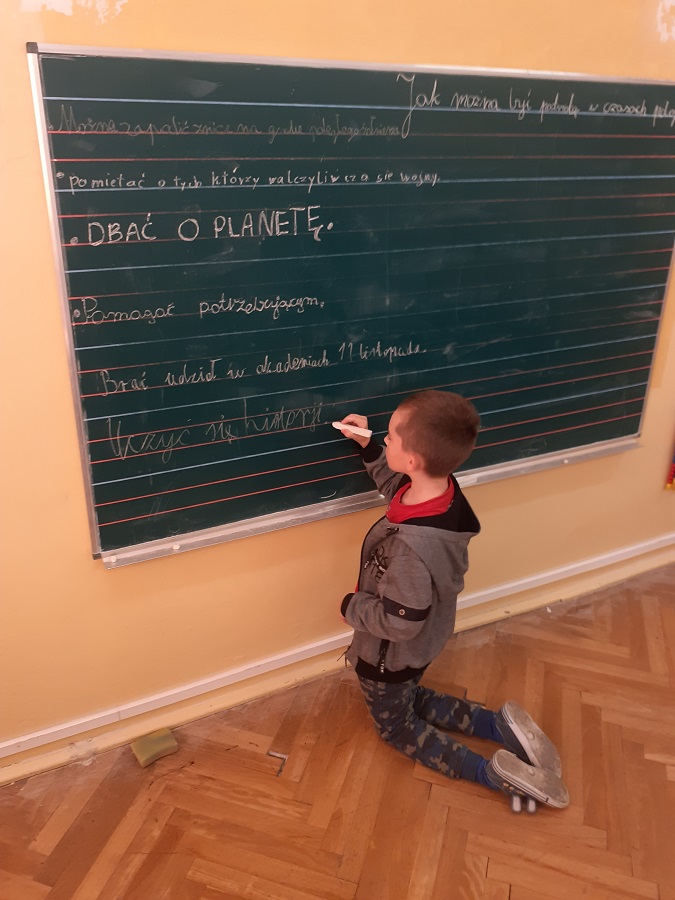 Jak można być w czasach
Można zapalić znicz na grobie poległego żołnierza
• pomietać o tych którzy walczyli w cza sie wojny.
• DBAĆ O PLANETĘ.
• Pomagać potrzebującym.
Brać udział w akademiach 11 listopada.
Uczyć się historji